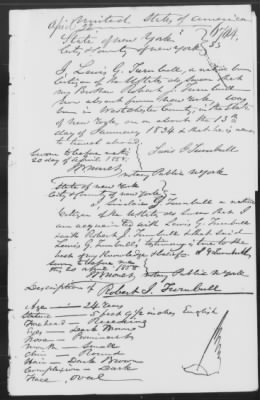 United States of America
State of New York
City & County of New York } SS
I, Lewis G. Turnbull, a native born
Citizen of the U States do swear that
my Brother Robert J. Turnbull
now absent from New York was
born in Westchester County, in the State
of New York, on or about the 13th
day of January 1834 that he is now
to travel abroad.
Lewis G Turnbull
Sworn to before me this
20 day of April 1858
Notary Public N York
State of New York
City & County of New York
I, Sinclair Turnbull a native
Citizen of the U States do swear that I
am acquainted with Lewis G. Turnbull
with Robert J. Turnbull & that said
Lewis G. Turnbull's testimony is true to the
best of my knowledge & belief.
Sworn to before me
this 20 April 1858
Notary Public N York
Description of Robert J. Turnbull
Age — 24 Years
Stature — 5 feet inches English
Forehead — Receding
Eyes — Dark Brown
Nose — Prominent
Mouth — Small
Chin — Round
Hair — Dark Brown
Complexion — Dark
Face, oval